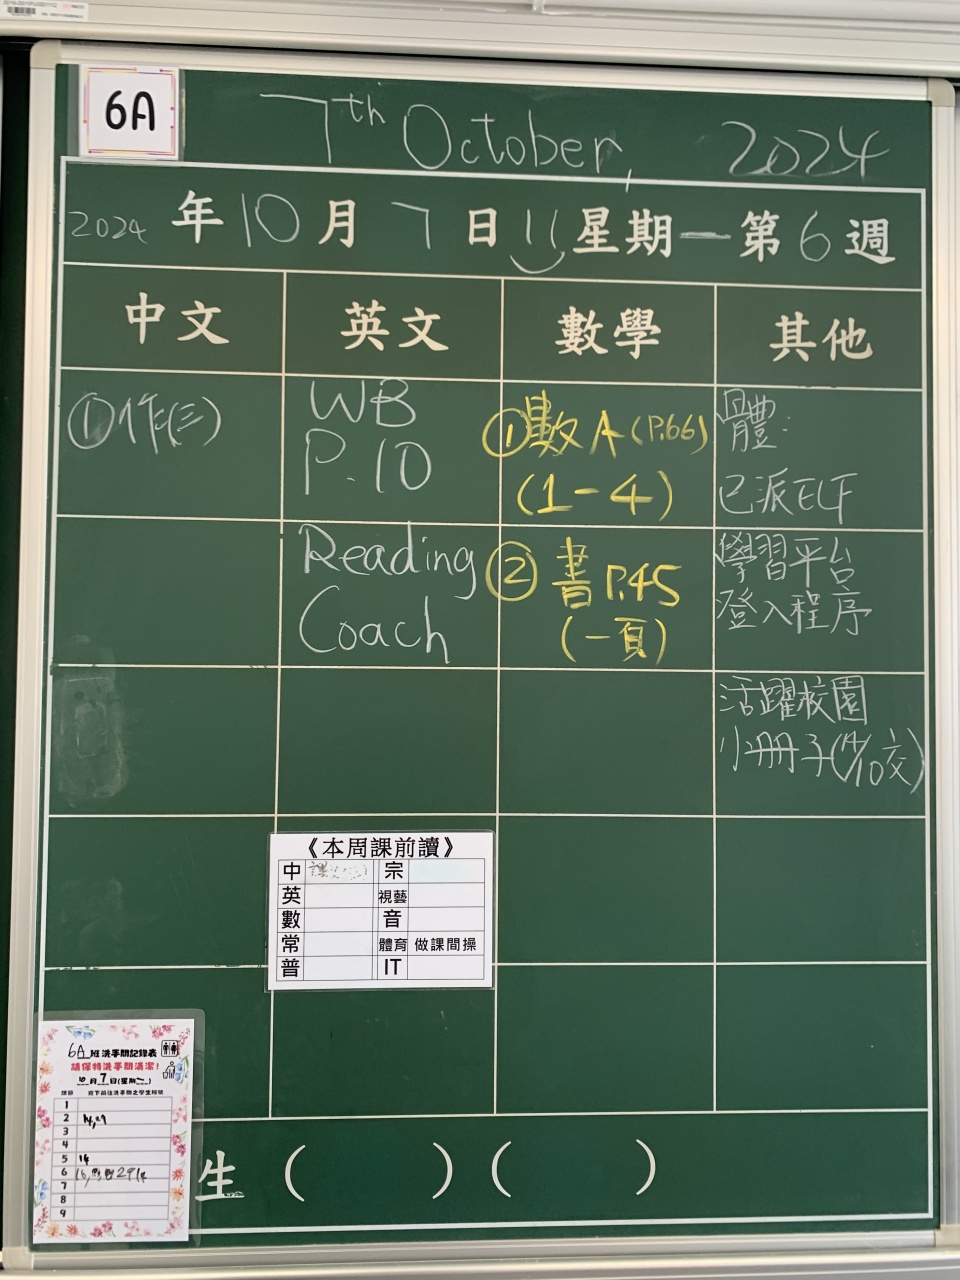 6A
7th October, 2024
2024 年 10 月 7 日 星期一 第 6 週
中文 英文 數學 其他
①作(三)
WB
P.10
①數A(P.66)
(1-4)
體:
已派ELF
Reading
Coach
②書P.45
(一頁)
學習平台
登入程序
活躍校園
小冊子(14/10交)
《本周課前讀》
中 宗
英 視藝
數 音
常 體育 做課間操
普 IT
6A 班洗手間記錄表
請保持洗手間清潔!
10月7日(星期一)
1
2
3
4
5 14
6
7
8
9
生 ( ) ( )